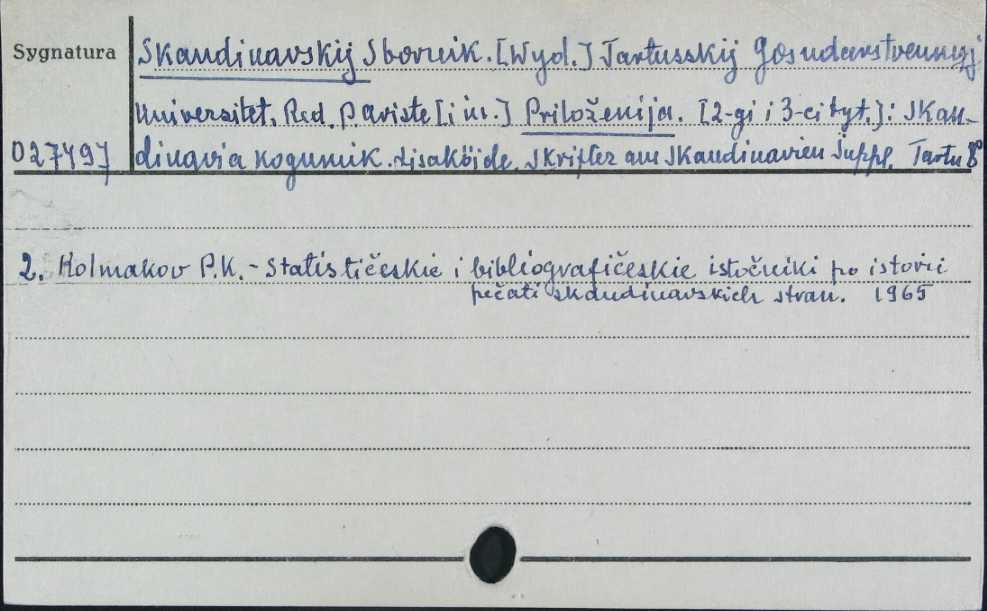 Sygnatura
Skandinavskij Sbornik. [Wyd.] Tartusskij Gosudarstvennyj
Universitet. Red. P. Ariste [i in.] Priloženija. [2-gi i 3-ci tyt.]: Skan-
027497
dinavia kogumik. Lisaköide. Skrifter aus Skandinavien Suppl. Tartu 8°
2. Kolmakov P.K. - Statističeskie i bibliografičeskie istočniki po istorii
pečati skandinavskich stran. 1965